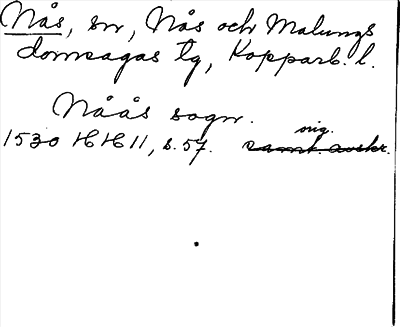 Nås, sn, Nås och Malungs
domsagas tg, Kopparb. l.
Nåås sogn.
orig.
1530 HH 11, s. 57. samt. avskr.